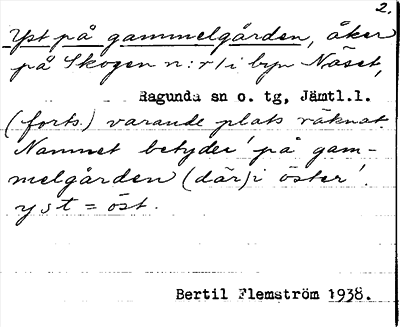 2.
Yst på gammelgården, åker
på Skogen n:r 1 i byn Näset,
Ragunda sn o. tg, Jämtl.l.
(forts.) varande plats räknat.
Namnet betyder 'på gam-
melgården (där) i öster'.
yst = öst.
Bertil Flemström 1938.